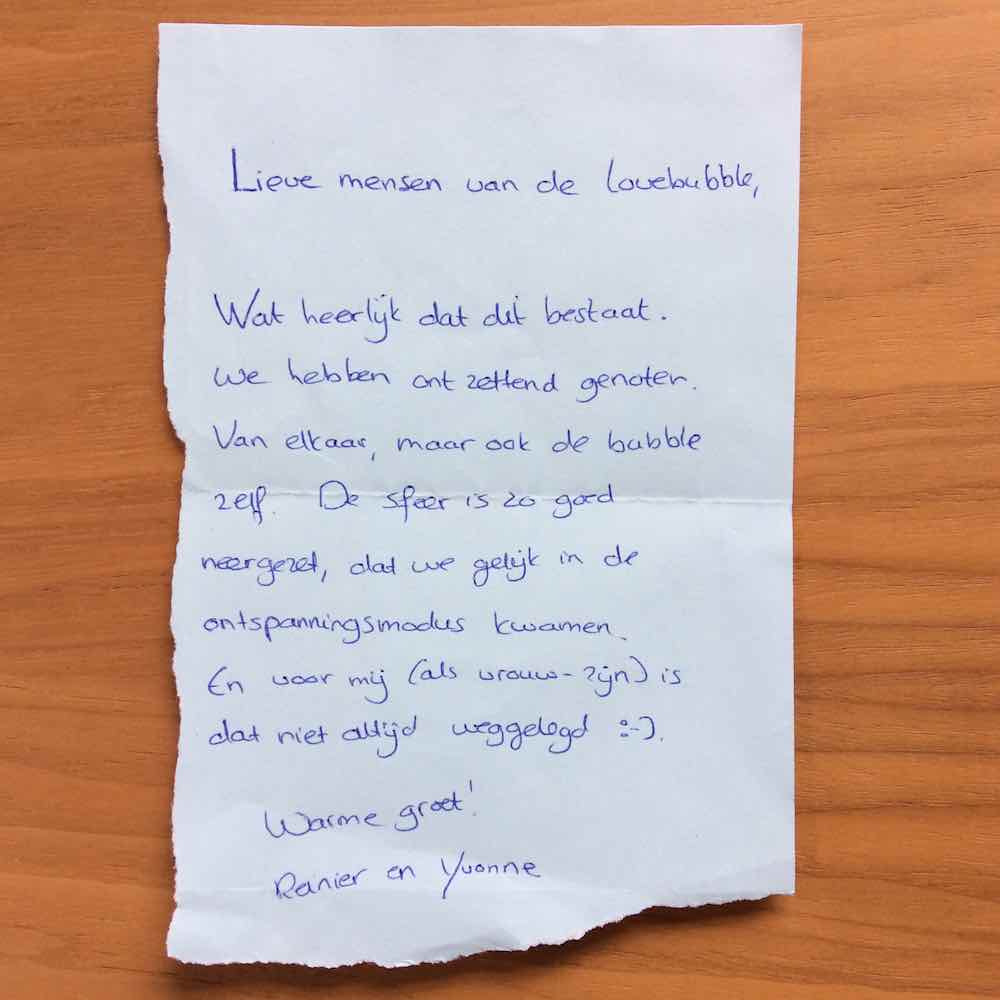 Lieve mensen van de lovebubble,
Wat heerlijk dat dit bestaat.
We hebben ontzettend genoten.
Van elkaar, maar ook de bubble
zelf. De sfeer is zo goed
neergezet, dat we gelijk in de
ontspanningsmodus kwamen.
En voor mij (als vrouw-zijn) is
dat niet altijd weggelegd :-).
Warme groet!
Reinier en Yvonne